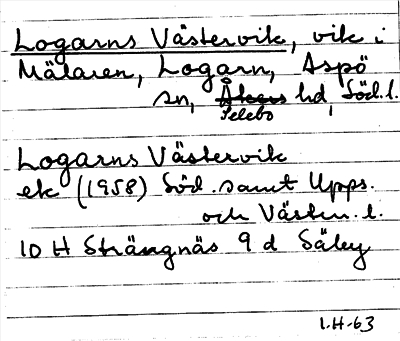 Logarns Västervik, vik i
Mälaren, Logarn, Aspö
sn, Åkers hd, Söd. l.
Selebo
Logarns Västervik
ek (1958) Söd. samt Upps.
och Västm. l.
10 H Strängnäs 9 d Säby
1.H-63